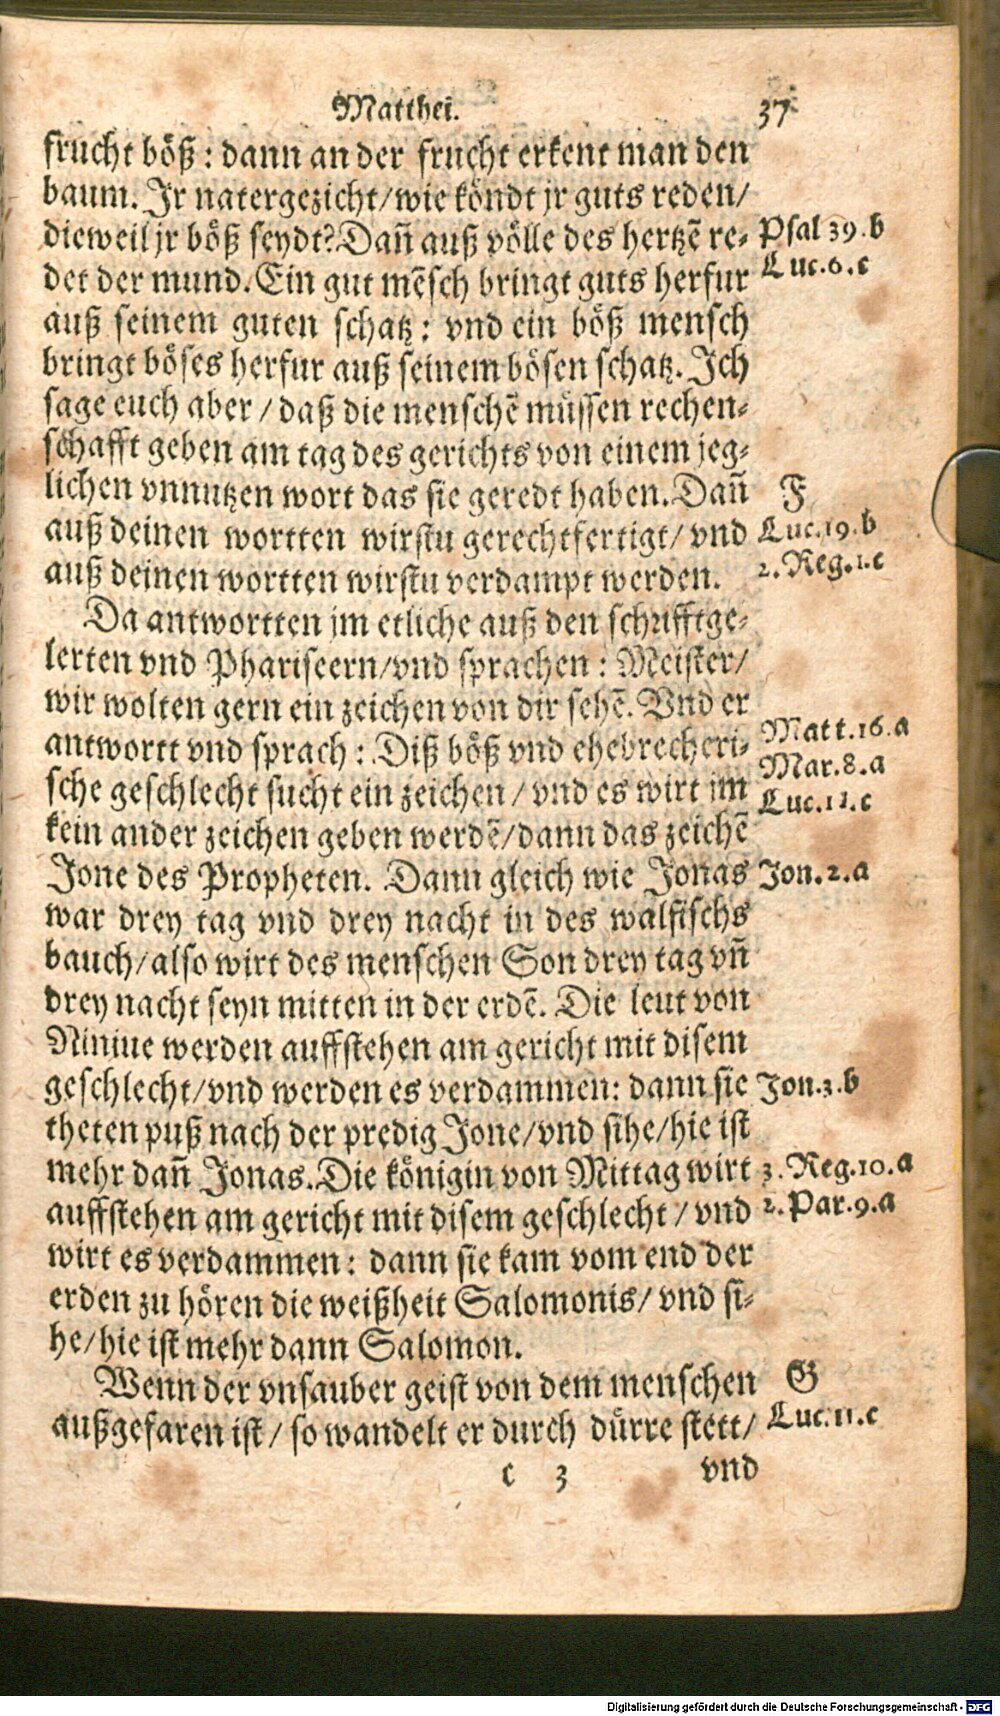 Matthei. 37
frucht böß: dann an der frucht erkent man den
baum. Jr natergezicht/wie köndt jr guts reden/
dieweil jr böß seydt? Dañ auß völle des hertzē re-
det der mund. Ein gut mēsch bringt guts herfur
auß seinem guten schatz: vnd ein böß mensch
bringt böses herfur auß seinem bösen schatz. Ich
sage euch aber / daß die menschē müssen rechen-
schafft geben am tag des gerichts von einem jeg-
lichen vnnutzen wort das sie geredt haben. Dañ
auß deinen wortten wirstu gerechtfertigt/ vnd
auß deinen wortten wirstu verdampt werden.
Da antwortten jm etliche auß den schrifftge-
lerten vnd Phariseern/vnd sprachen: Meister/
wir wolten gern ein zeichen von dir sehē. Vnd er
antwortt vnd sprach: Diß böß vnd ehebrecheri-
sche geschlecht sucht ein zeichen / vnd es wirt jm
kein ander zeichen geben werdē/dann das zeichē
Jone des Propheten. Dann gleich wie Jonas
war drey tag vnd drey nacht in des walfischs
bauch/also wirt des menschen Son drey tag vñ
drey nacht seyn mitten in der erdē. Die leut von
Niniue werden auffstehen am gericht mit disem
geschlecht/vnd werden es verdammen: dann sie
theten puß nach der predig Jone/vnd sihe/hie ist
mehr dañ Jonas. Die königin von Mittag wirt
auffstehen am gericht mit disem geschlecht / vnd
wirt es verdammen: dann sie kam vom end der
erden zu hören die weißheit Salomonis/ vnd si-
he/hie ist mehr dann Salomon.
Wenn der vnsauber geist von dem menschen
außgefaren ist/ so wandelt er durch dürre stett/
c 3 vnd
Psal 39.b
Luc.6.c
F
Luc.19.b
2.Reg.1.c
Matt.16.a
Mar.8.a
Luc.11.c
Jon.2.a
Jon.3.b
3.Reg.10.a
2.Par.9.a
G
Luc.11.c
Digitalisierung gefördert durch die Deutsche Forschungsgemeinschaft - DFG